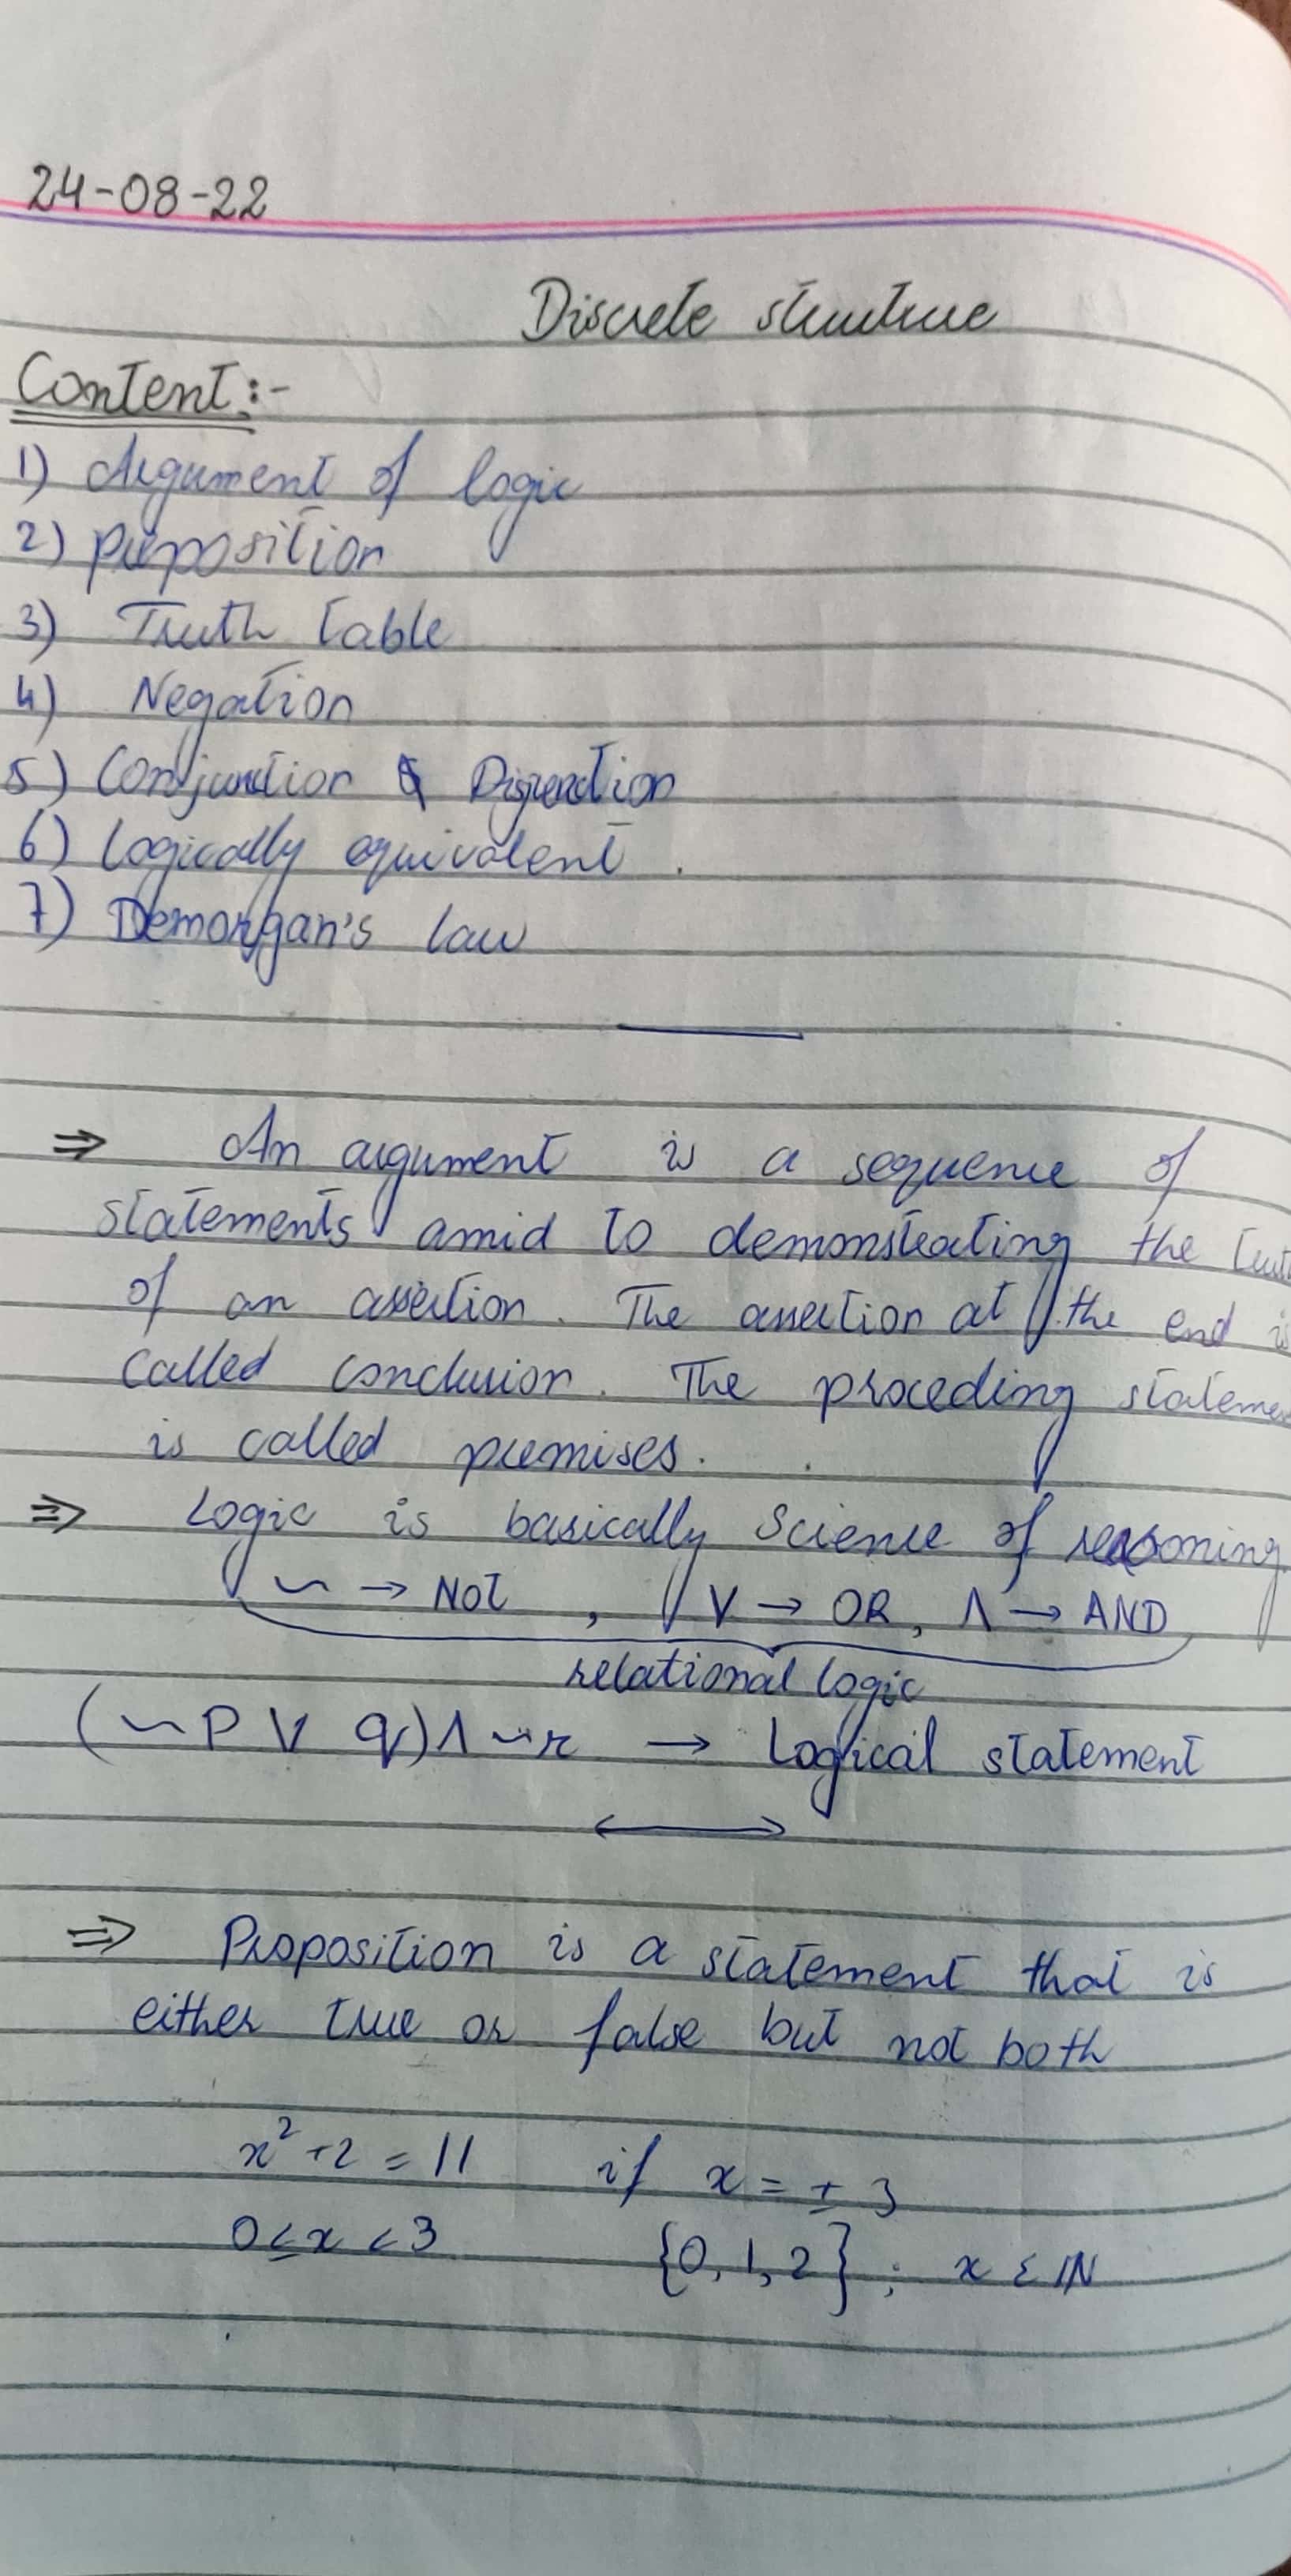 24-08-22
Discrete structure
Content:-
1) Argument of logic
2) preposition
3) Truth table
4) Negation
5) Conjunction & Disjunction
6) Logically equivalent.
7) Demorgan's law
⇒ An argument is a sequence of
statements amid to demonstrating the
of an assertion. The assertion at the end is
called conclusion. The proceding
is called premises.
⇒ Logic is basically Science of reasoning
~ → NOT , V → OR, Λ → AND
relational logic
(~P V q) Λ ~r → Logical statement
⇒ Proposition is a statement that is
either true or false but not both
x² + 2 = 11 if x = ± 3
0 ≤ x < 3 {0, 1, 2} ; x ε IN